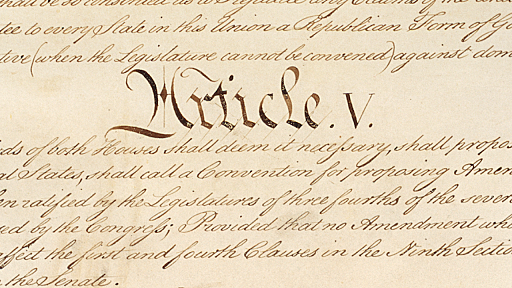 be so construed as to Prejudice any Claims of the
tee to every State in this Union a Republican Form of Go
tive (when the Legislature cannot be convened) against dom
Article. V.
ds of both Houses shall deem it necessary, shall propos
al States, shall call a Convention for proposing Amen
en ratified by the Legislatures of three fourths of the sever
ed by the Congress; Provided that no Amendment whi
ffect the first and fourth Clauses in the Ninth Sectio
the Senate.